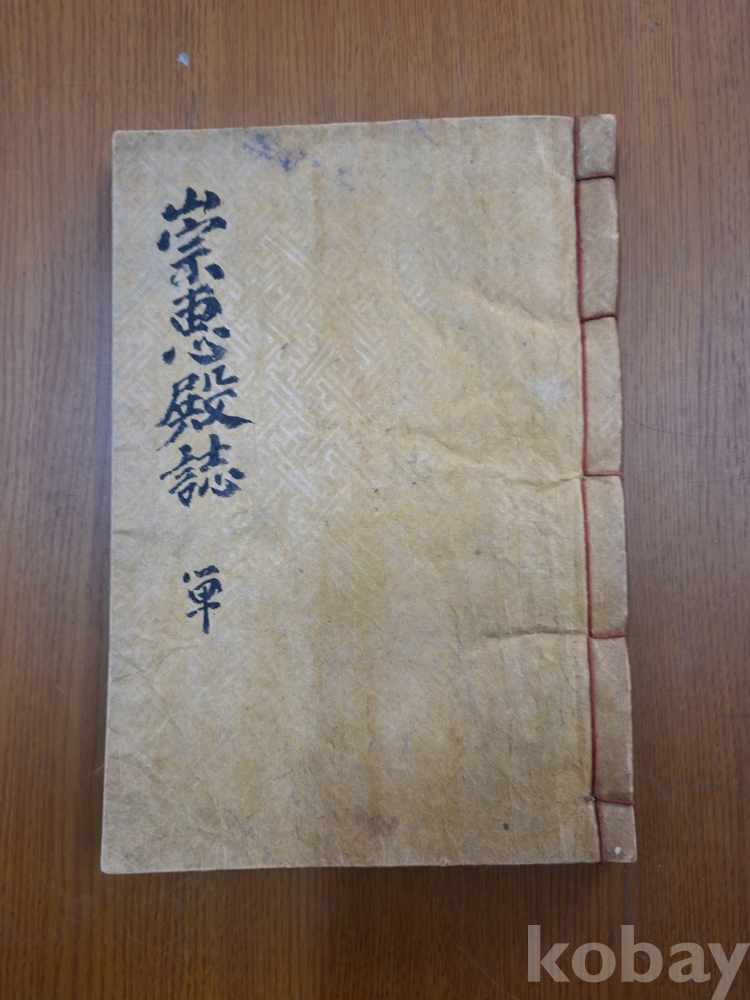 崇惠殿誌
单
kobay